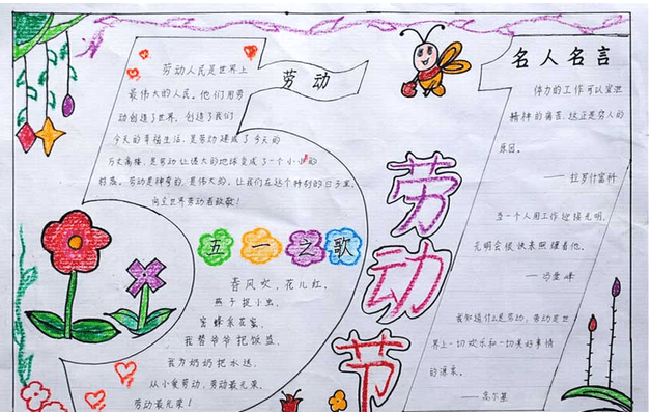 劳动
劳动人民是世界上
最伟大的人民。他们用劳
动创造了世界，创造了我们
今天的幸福生活。是劳动建成了今天的
万丈高楼，是劳动让偌大的地球变成了一个小小的
村落。劳动是神奇的，是伟大的。让我们在这个特别的日子里，
向全世界劳动者致敬！
五一之歌
春风吹，花儿红。
燕子捉小虫，
蜜蜂采花蜜，
我帮爷爷把饭盛，
我为奶奶把水送，
从小爱劳动，劳动最光荣，
劳动最光荣！
劳动节
名人名言
体力的工作可以宣泄
精神的痛苦，这正是穷人的
原因。
——拉罗什富科
当一个人用工作迎接光明，
光明会很快来照耀着他。
——冯雪峰
我知道什么是劳动，劳动是世
界上一切欢乐和一切美好事情
的源泉。
——高尔基